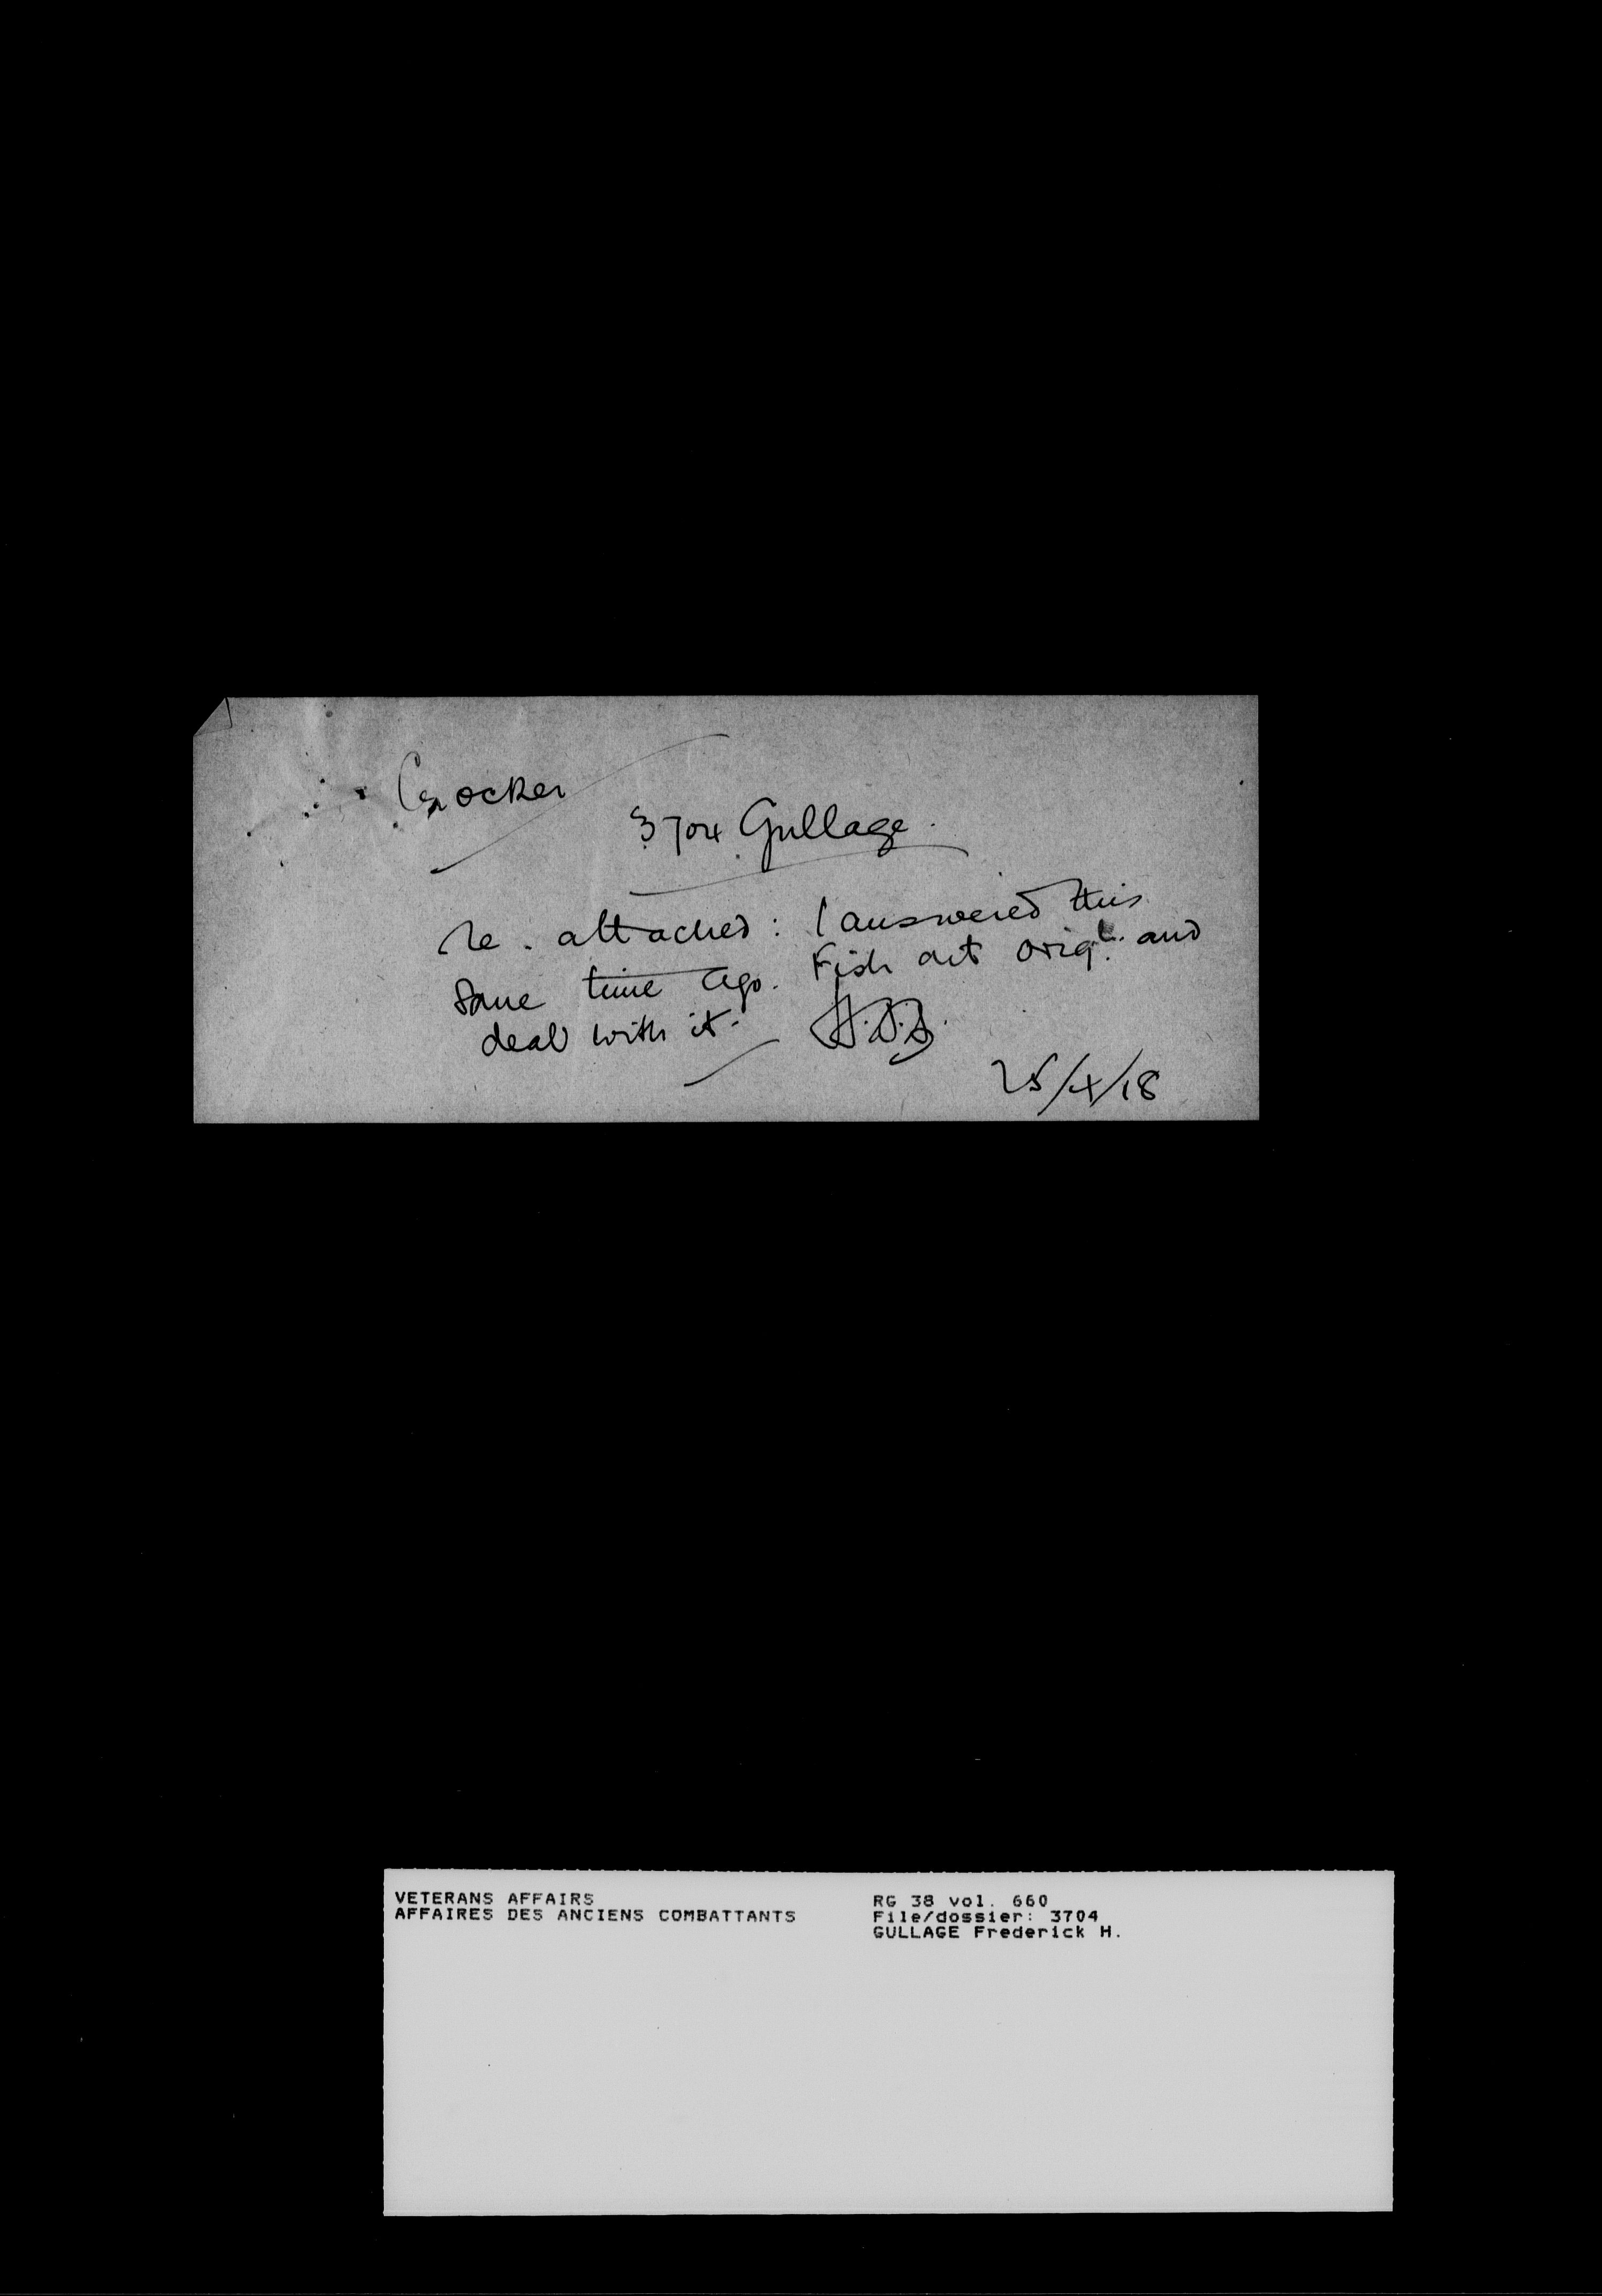 Crocker
3704 Gullage.
Re. attached: I answered this
some time ago. Fish out orig<sup>l</sup>. and
deal with it.
25/4/18
VETERANS AFFAIRS
AFFAIRES DES ANCIENS COMBATTANTS
RG 38 vol. 660
File/dossier: 3704
GULLAGE Frederick H.